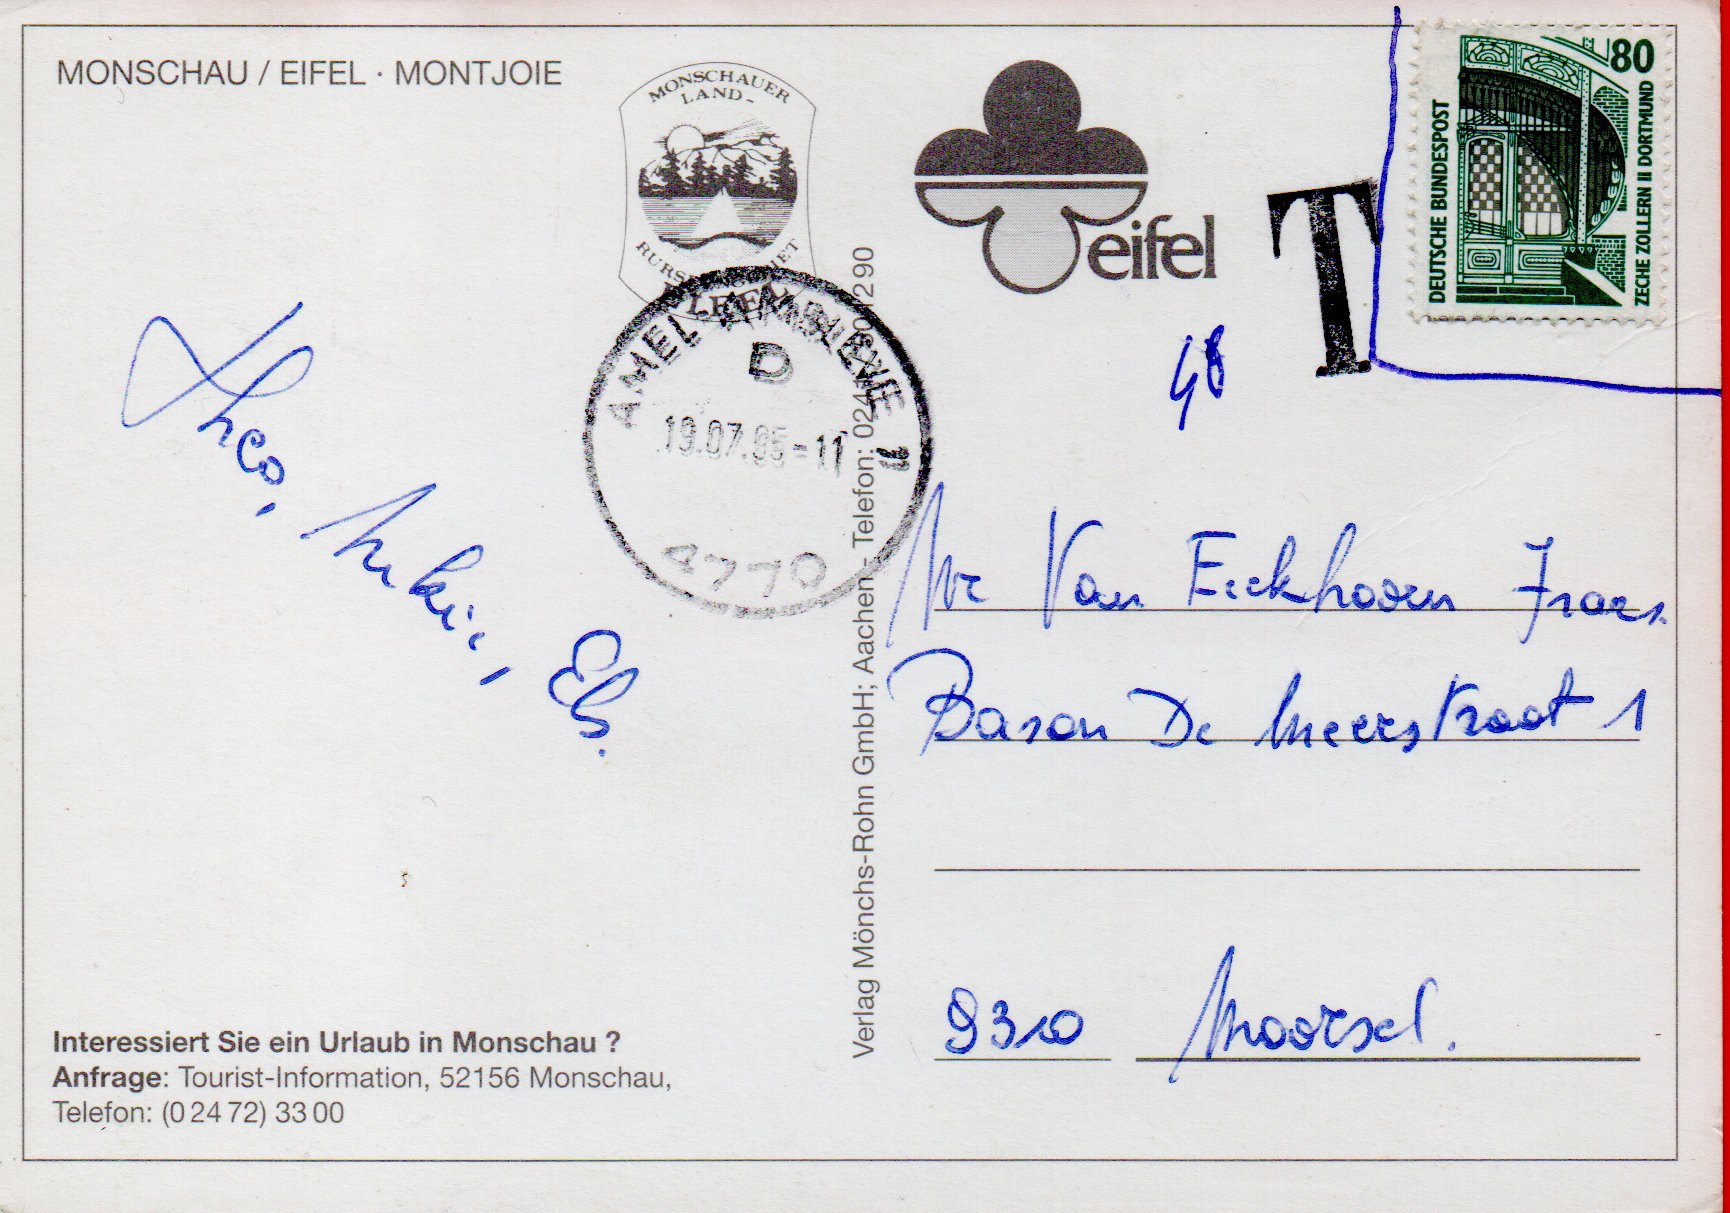 MONSCHAU / EIFEL · MONTJOIE
MONSCHAUER
LAND-
EIFEL
eifel
T
80
DEUTSCHE BUNDESPOST
ZECHE ZOLLERN II DORTMUND
AMEL
D
19.07.95-11
4770
48
Theo,
Els.
Mr Van Eeckhoorn Frans.
Baron De Meerstraat 1
9310 Moorsel.
Verlag Mönchs-Rohn GmbH; Aachen - Telefon:
Interessiert Sie ein Urlaub in Monschau ?
Anfrage: Tourist-Information, 52156 Monschau,
Telefon: (0 24 72) 33 00